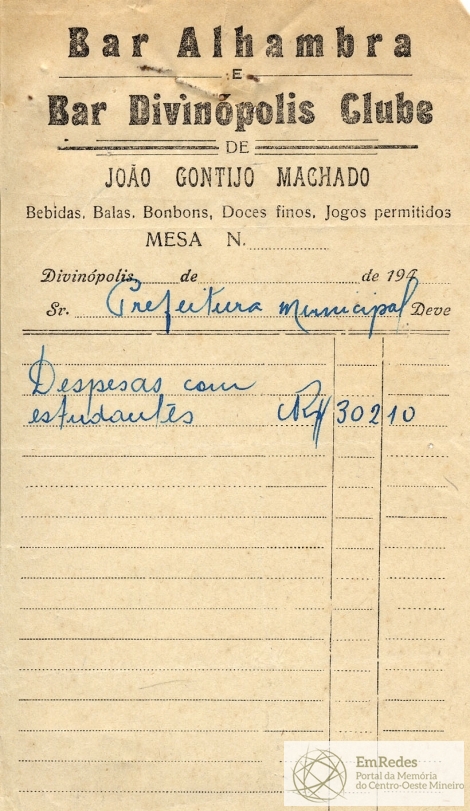 Bar Alhambra
E
Bar Divinópolis Clube
DE
JOÃO GONTIJO MACHADO
Bebidas, Balas, Bonbons, Doces finos, Jogos permitidos
MESA N.
Divinópolis, de de 194
Sr. Prefeitura Municipal Deve
Despesas com
estudantes Cr$ 302 10
EmRedes
Portal da Memória
do Centro-Oeste Mineiro